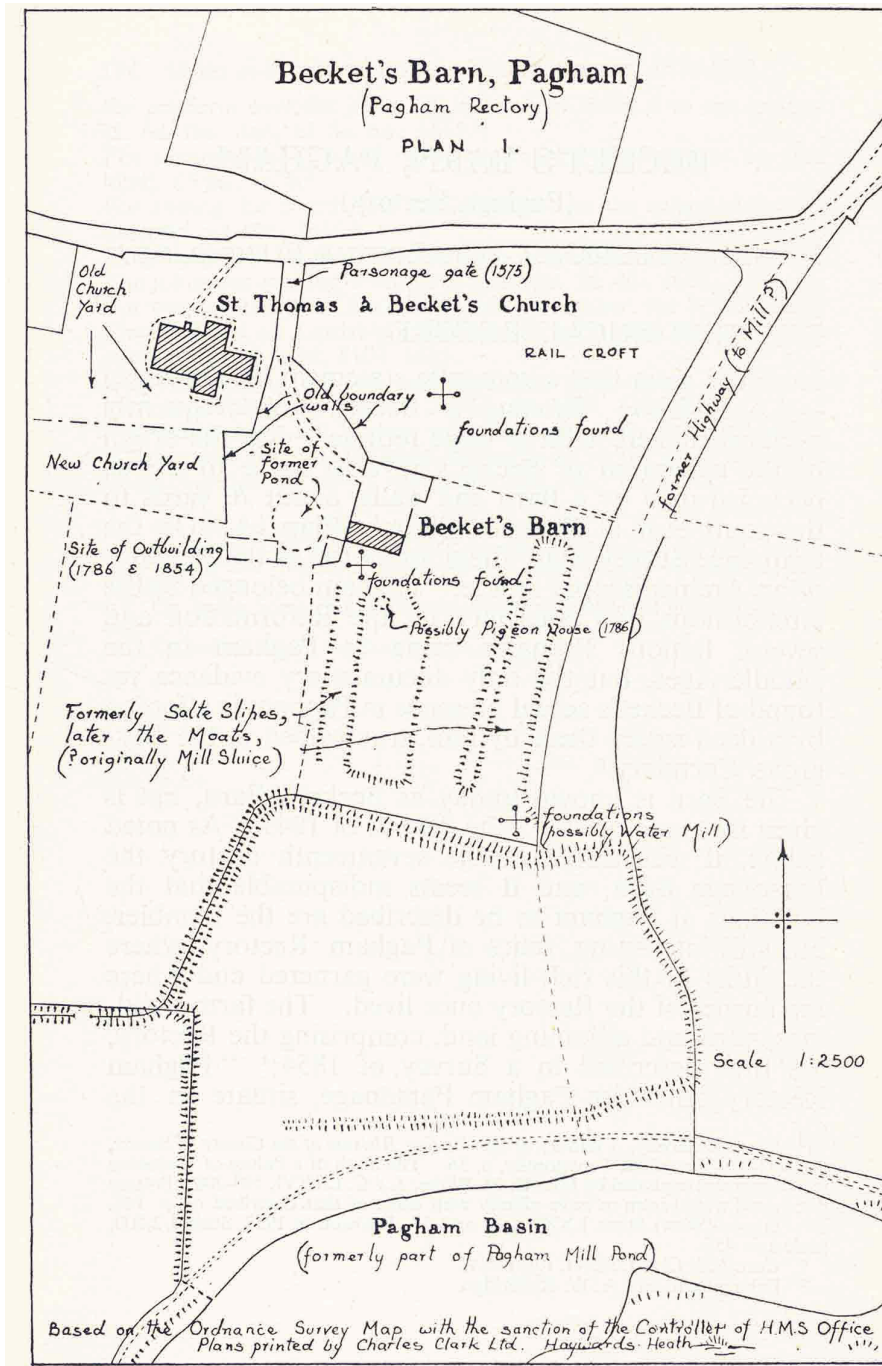 Becket's Barn, Pagham.
(Pagham Rectory)
PLAN 1.
Old
Church
Yard
Parsonage gate (1575)
St. Thomas à Becket's Church
RAIL CROFT
former Highway (to Mill?)
Old boundary
walls
foundations found
New Church Yard
Site of
former
Pond
Becket's Barn
Site of Outbuilding
(1786 & 1854)
foundations found
Possibly Pigeon House (1786)
Formerly Salte Slipes,
later the Moats,
(?originally Mill Sluice)
foundations
(possibly Water Mill)
Scale 1:2500
Pagham Basin
(formerly part of Pagham Mill Pond)
Based on the Ordnance Survey Map with the sanction of the Controller of H.M.S Office
Plans printed by Charles Clark Ltd. Haywards Heath